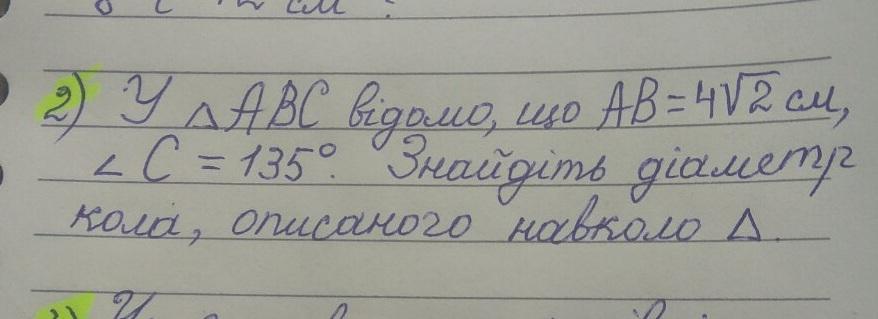 2) У △ABC відомо, що AB=4√2 см,
∠C = 135°. Знайдіть діаметр
кола, описаного навколо △.